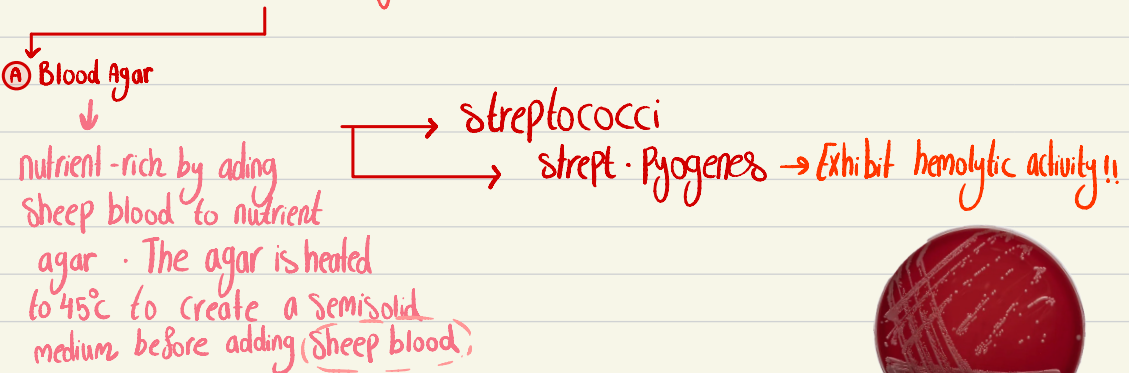 A Blood Agar
nutrient-rich by ading
sheep blood to nutrient
agar. The agar is heated
to 45°c to create a semisolid
medium before adding (sheep blood)
streptococci
strept. Pyogenes → Exhibit hemolytic activity!!